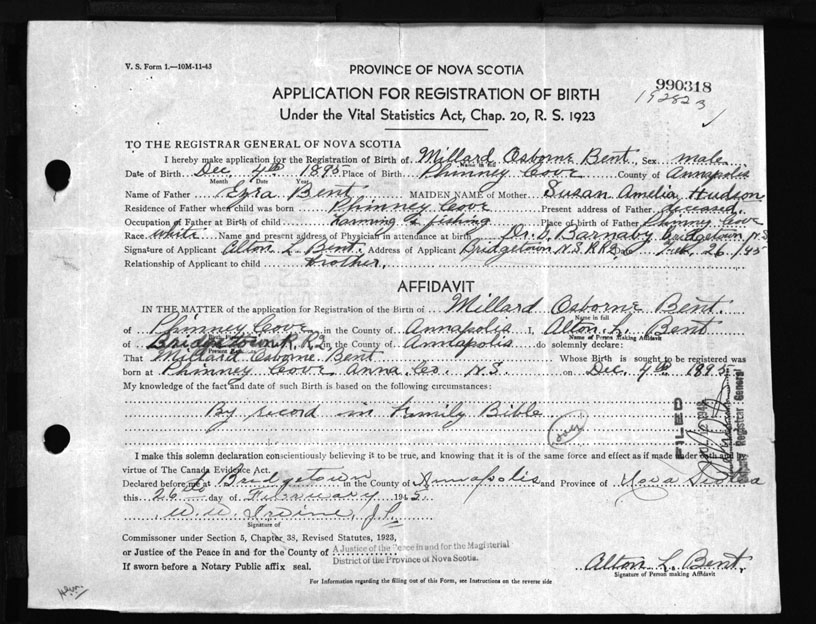 V. S. Form 1.—10M-11-43
PROVINCE OF NOVA SCOTIA
990318
APPLICATION FOR REGISTRATION OF BIRTH
192823
Under the Vital Statistics Act, Chap. 20, R. S. 1923
TO THE REGISTRAR GENERAL OF NOVA SCOTIA
I hereby make application for the Registration of Birth of Millard Osborne Bent, Sex male
Name in full
Date of Birth Dec. 4th 1895 Place of Birth Phinney Cove County of Annapolis
Month Date Year
Name of Father Ezra Bent MAIDEN NAME of Mother Susan Amelia Hudson
Residence of Father when child was born Phinney Cove Present address of Father deceased
Occupation of Father at Birth of child Farming & fishing Place of birth of Father Phinney Cove
Race white Name and present address of Physician in attendance at birth Dr. Barnaby Bridgetown N.S.
Signature of Applicant Alton L. Bent. Address of Applicant Bridgetown N.S. R.R.2 Date Feb. 26 /45
Relationship of Applicant to child brother.
AFFIDAVIT
IN THE MATTER of the application for Registration of the Birth of Millard Osborne Bent.
Name in full
of Phinney Cove in the County of Annapolis I, Alton L. Bent
Name of Person Making Affidavit
of Bridgetown R. R. 2 in the County of Annapolis do solemnly declare:
That Millard Osborne Bent Whose Birth is sought to be registered was
born at Phinney Cove Anna. Co. N.S. on Dec. 4th 1895
My knowledge of the fact and date of such Birth is based on the following circumstances:
By record in Family Bible
(over)
FILED
Deputy Registrar General
I make this solemn declaration conscientiously believing it to be true, and knowing that it is of the same force and effect as if made under oath and by
virtue of The Canada Evidence Act.
Declared before me at Bridgetown in the County of Annapolis and Province of Nova Scotia
this 26th day of February 1945.
W. W. Irvine, J.P.
Signature of
Commissioner under Section 5, Chapter 38, Revised Statutes, 1923,
or Justice of the Peace in and for the County of A Justice of the Peace in and for the Magisterial
District of the Province of Nova Scotia.
If sworn before a Notary Public affix seal.
Alton L. Bent.
Signature of Person making Affidavit
For Information regarding the filling out of this Form, see Instructions on the reverse side